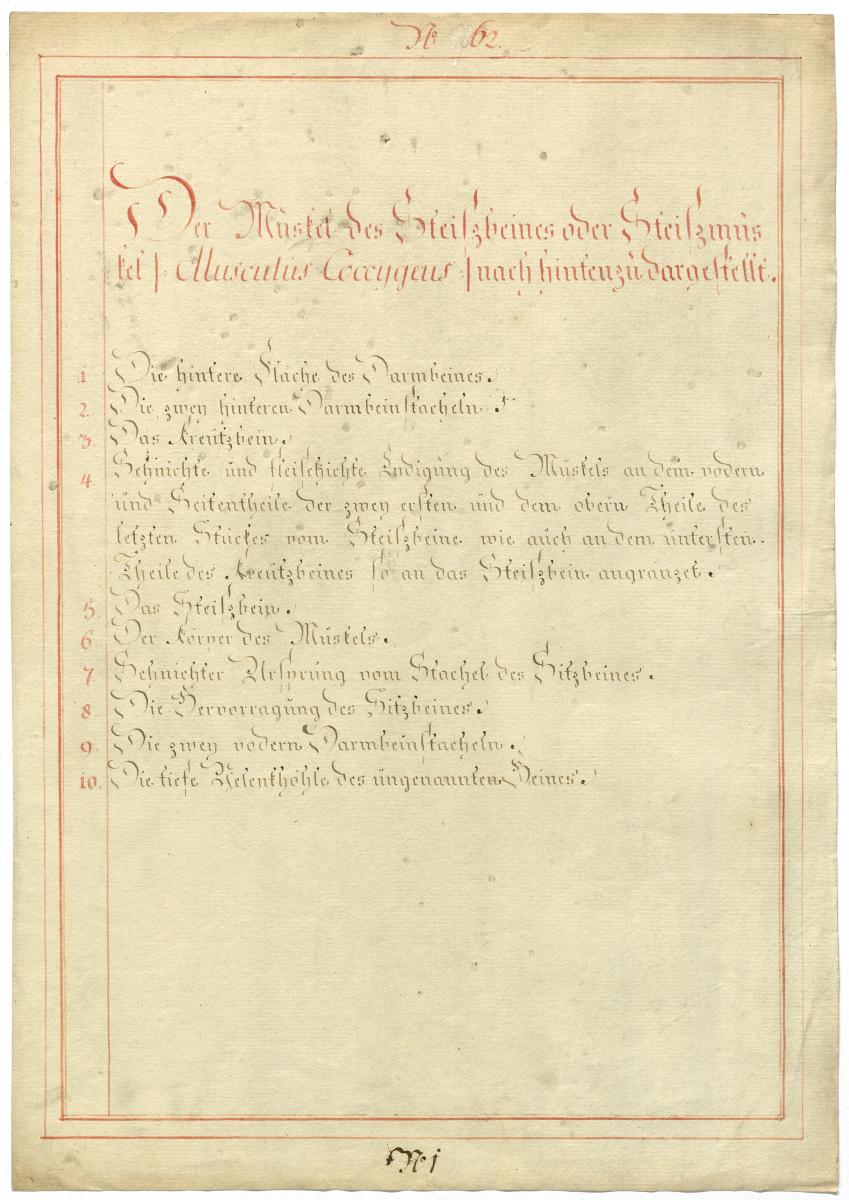 No 62.
Der Muskel des Steiszbeines oder Steiszmus
kel |: Musculus Coccygeus :| nach hinten zu dargestellt.
1 Die hintere Fläche des Darmbeines.
2. Die zwey hinteren Darmbeinstacheln
3. Das Kreutzbein.
4. Sehnichte und fleischichte Endigung des Muskels an dem vodern
und Seitentheile der zwey ersten und dem obern Theile des
letzten Stückes vom Steiszbeine wie auch an dem untersten
Theile des Kreutzbeines so an das Steiszbein angränzet.
5. Das Steiszbein.
6. Der Körper des Muskels.
7. Sehnichter Ursprung vom Stachel des Sitzbeines.
8. Die Hervorragung des Sitzbeines.
9. Die zwey vodern Darmbeinstacheln.
10. Die tiefe Gelenkhöhle des ungenannten Beines.
No 1